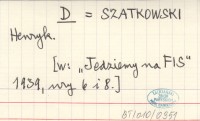 D = SZATKOWSKI
Henryk.
[w: „Jedziemy na FIS"
1939, nry 6 i 8.]
BT/010/0959